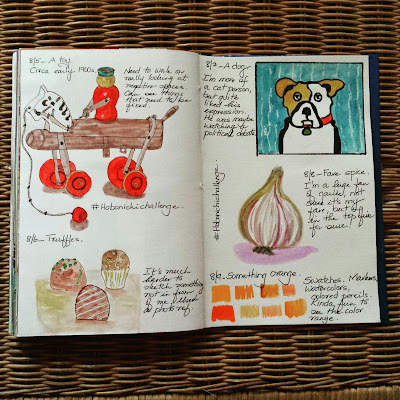 8/5 - A toy.
Circa early 1960s.
Need to work on
really looking at
negative spaces.
Can see things
that need to be
fixed.
#Hobonichichallenge.
8/6 - Truffles.
It's much
harder to
sketch something
not in front
of me. Used
a photo ref.
8/7 - A dog.
I'm more of
a cat person,
but quite
liked his
expression.
He was maybe
watching a
political debate.
#Hobonichichallenge.
8/8 - Fave spice.
I'm a large fan
of garlic, not
sure it's my
fave but it's
in the top five
for sure!
8/9 - Something orange.
Swatches. Markers,
watercolors,
colored pencils.
Kinda fun to
see the color
range.